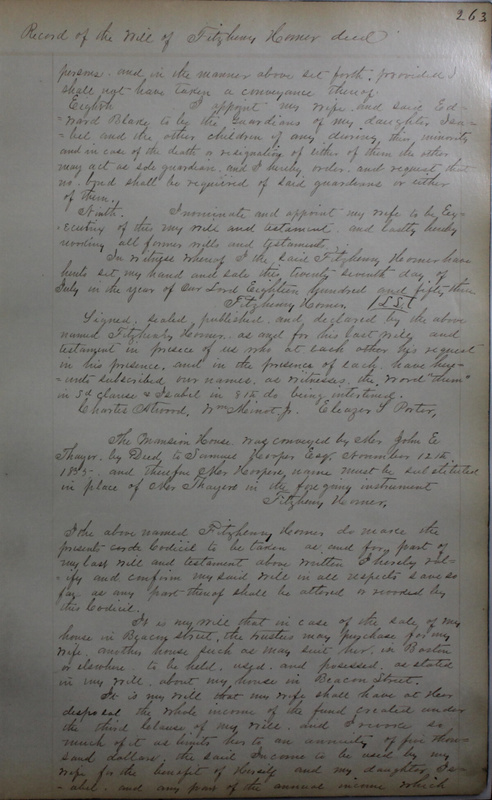 263
Record of the Will of Fitzhenry Homer deced
persons and in the manner above set forth, provided I
shall not have taken a conveyance thereof.
Eighth I appoint my wife and said Ed-
=ward Blake to be the guardians of my daughter Isa-
=bel and the other children if any during their minority
and in case of the death or resignation of either of them the other
may act as sole guardian and I hereby order and request that
no bond shall be required of said guardians or either
of them.
Ninth. I nominate and appoint my wife to be Exe-
=cutrix of this my will and testament and lastly hereby
revoking all former wills and testament.
In Witness whereof I the said Fitzhenry Homer have
hereto set my hand and seale this twenty seventh day of
July in the year of Our Lord Eighteen hundred and fifty three
Fitzhenry Homer, L.S.
Signed, sealed, published, and declared by the above
named Fitzhenry Homer, as and for his last will and
testament in presece of us who at each other his request
in his presence, and in the presence of each have here-
=unto subscribed our names, as witnesses, the word "them"
in 3d clause & Isabel in 8th do, being interlined.
Charles Atwood, Wm Minot Jr. Eleazer Porter,
The Mansion House was conveyed by Mr John E
Thayer by Deed, to Samuel Hooper Esq. November 12th
and therefore Mr Hoopers name must be substituted
in place of Mr Thayers in the foregoing instrument
Fitzhenry Homer,
I the above named Fitzhenry Homer do make the
present Codicil to be taken as and for part of
my last will and testament above written I hereby rat-
=ify and confirm my said will in all respects save so
far as any part thereof shall be altered or revoked by
this Codicil.
It is my will that in case of the sale of my
house in Beacon street, the trustees may purchase for my
wife another house such as may suit her, in Boston
or elsewhere to be held, used, and posessed, as stated
in my will, about my house in Beacon Street.
It is my will that my wife shall have at her
disposal the whole income of the fund created under
the third clause of my will, and I revoke so
much of it as limits her to an annuity of five thou-
sand dollars, the said Income to be used by my
wife for the benefit of herself and my daughter Is-
=abel and any part of the annual income which